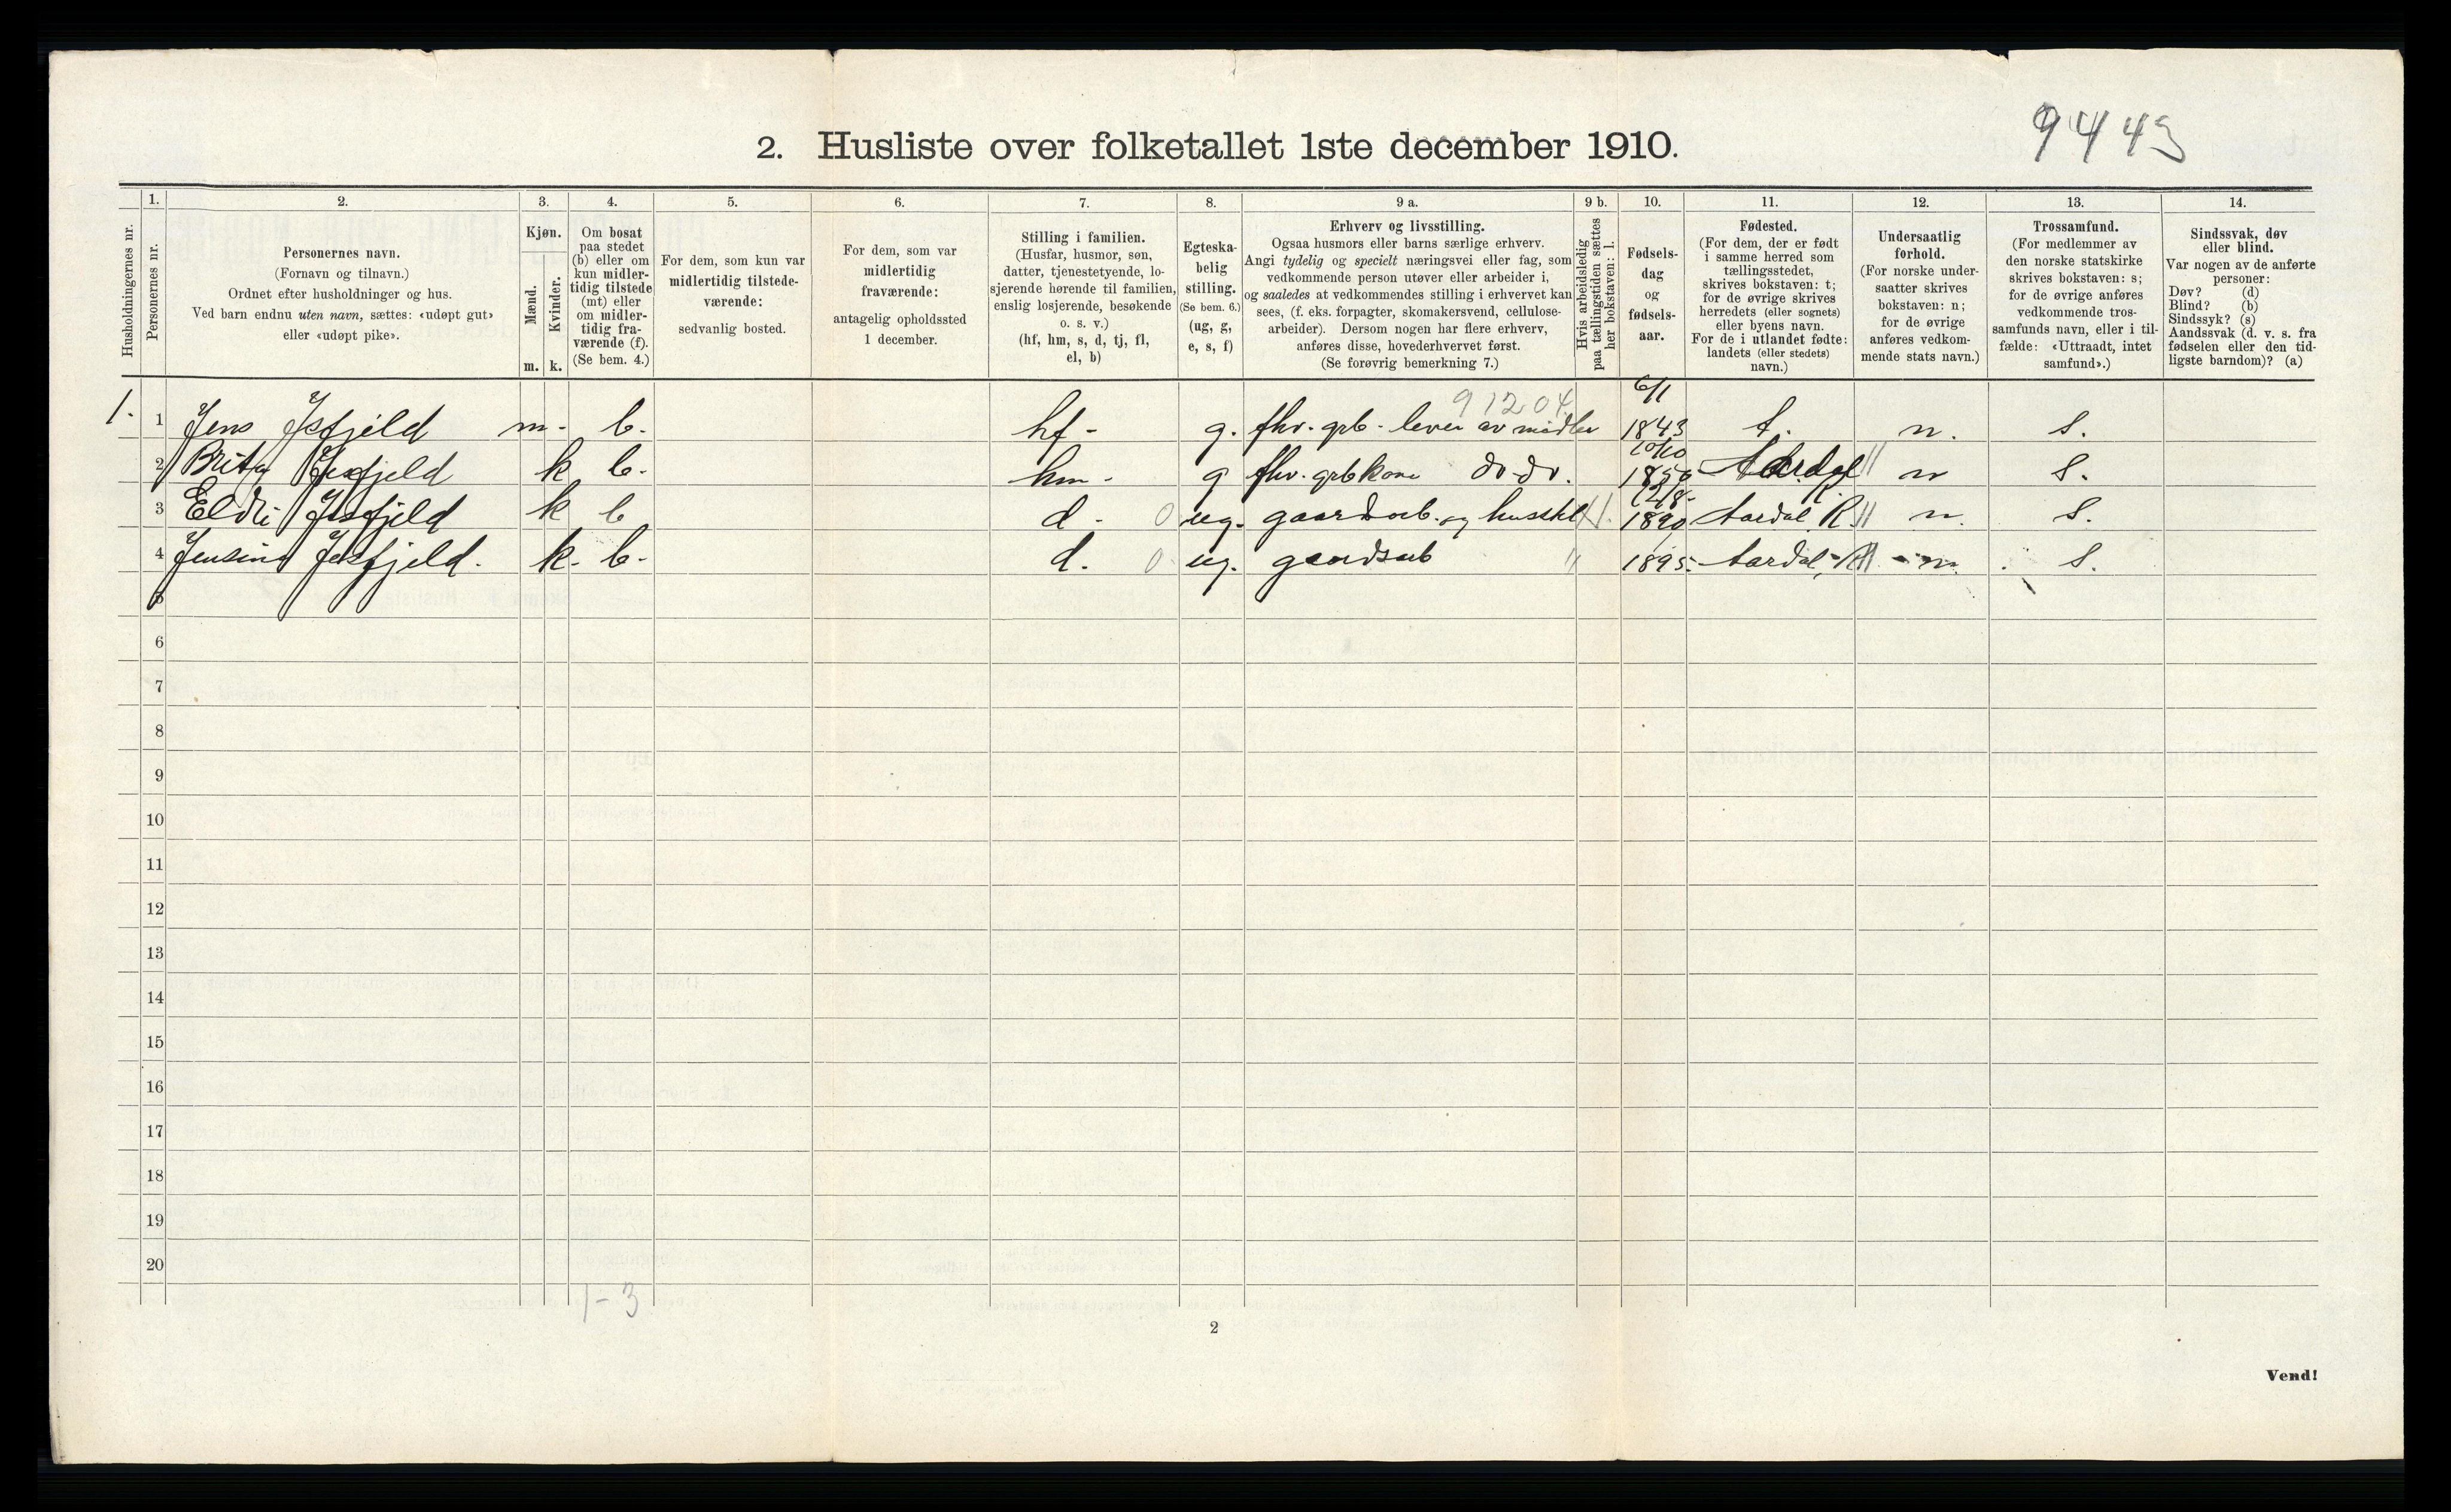 9443
2. Husliste over folketallet 1ste december 1910.
1. 2. 3. 4. 5. 6. 7. 8. 9 a. 9 b. 10. 11. 12. 13. 14.
Husholdningernes nr.
Personernes nr.
Personernes navn.
(Fornavn og tilnavn.)
Ordnet efter husholdninger og hus.
Ved barn endnu uten navn, sættes: «udøpt gut»
eller «udøpt pike».
Kjøn.
Mænd.
Kvinder.
m. k.
Om bosat
paa stedet
(b) eller om
kun midler-
tidig tilstede
(mt) eller
om midler-
tidig fra-
værende (f).
(Se bem. 4.)
For dem, som kun var
midlertidig tilstede-
værende:
sedvanlig bosted.
For dem, som var
midlertidig
fraværende:
antagelig opholdssted
1 december.
Stilling i familien.
(Husfar, husmor, søn,
datter, tjenestetyende, lo-
sjerende hørende til familien,
enslig losjerende, besøkende
o. s. v.)
(hf, hm, s, d, tj, fl,
el, b)
Egteska-
belig
stilling.
(Se bem. 6.)
(ug, g,
e, s, f)
Erhverv og livsstilling.
Ogsaa husmors eller barns særlige erhverv.
Angi tydelig og specielt næringsvei eller fag, som
vedkommende person utøver eller arbeider i,
og saaledes at vedkommendes stilling i erhvervet kan
sees, (f. eks. forpagter, skomakersvend, cellulose-
arbeider). Dersom nogen har flere erhverv,
anføres disse, hovederhvervet først.
(Se forøvrig bemerkning 7.)
Hvis arbeidsledig
paa tællingstiden sættes
her bokstaven: l.
Fødsels-
dag
og
fødsels-
aar.
Fødested.
(For dem, der er født
i samme herred som
tællingsstedet,
skrives bokstaven: t;
for de øvrige skrives
herredets (eller sognets)
eller byens navn.
For de i utlandet fødte:
landets (eller stedets)
navn.)
Undersaatlig
forhold.
(For norske under-
saatter skrives
bokstaven: n;
for de øvrige
anføres vedkom-
mende stats navn.)
Trossamfund.
(For medlemmer av
den norske statskirke
skrives bokstaven: s;
for de øvrige anføres
vedkommende tros-
samfunds navn, eller i til-
fælde: «Uttraadt, intet
samfund».)
Sindssvak, døv
eller blind.
Var nogen av de anførte
personer:
Døv? (d)
Blind? (b)
Sindssyk? (s)
Aandssvak (d. v. s. fra
fødselen eller den tid-
ligste barndom)? (a)
91204 6/1
1. 1 Jens Isfjeld m- b. hf- g. fhv. grb- lever av midler 1843 t. n. S.
2 Brita k b- hm- g fhv. grbkone do-do. Aardal n S.
3 Eldri Isfjeld k b d- 0 ug. gaardarb. og husstel 1890 Aardal R. n. S.
4 k. b- d. 0 ug. 1895. Aardal, n. S.
5
6
7
8
9
10
11
12
13
14
15
16
17
18
19
20
1-3
2
Vend!